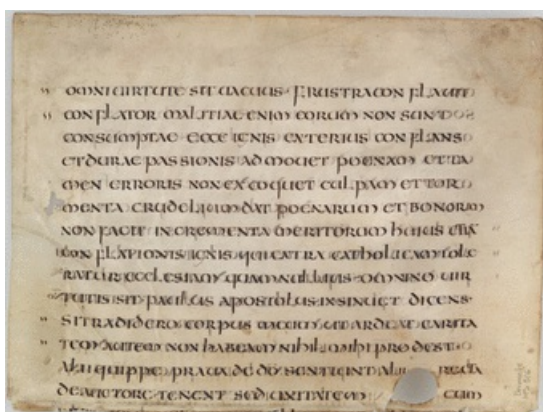 OMNI UIRTUTE SIT UACUUS· FRUSTRA CONFLAUIT
CONFLATOR MALITIAE ENIM EORUM NON SUNT
CONSUMPTAE· ECCE IGNIS EXTERIUS CONFLANS
ET DURAE PASSIONIS ADMOUET POENAM ET TA
MEN ERRORIS NON EXCOQUET CULPAM ET TOR
MENTA CRUDELIUM DAT POENARUM ET BONORUM
NON FACIT INCREMENTA MERITORUM HUIUS ETIA
CONFLATIONIS IGNIS QUI EXTRA CATHOLICAM TOLE
RATUR ECCLESIAM QUAM NULLIUS OMNINO UIR
TUTIS SIT PAULUS APOSTOLUS INSINUET DICENS·
SI TRADIDERO CORPUS MEUM UT ARDEAT CARITA
TEM AUTEM NON HABEAM NIHIL MIHI PRODEST·
ALII QUIPPE PRAUA DE DO SENTIUNT ALII RECTA
DE AUCTORE TENENT SED UNITATEM CUM